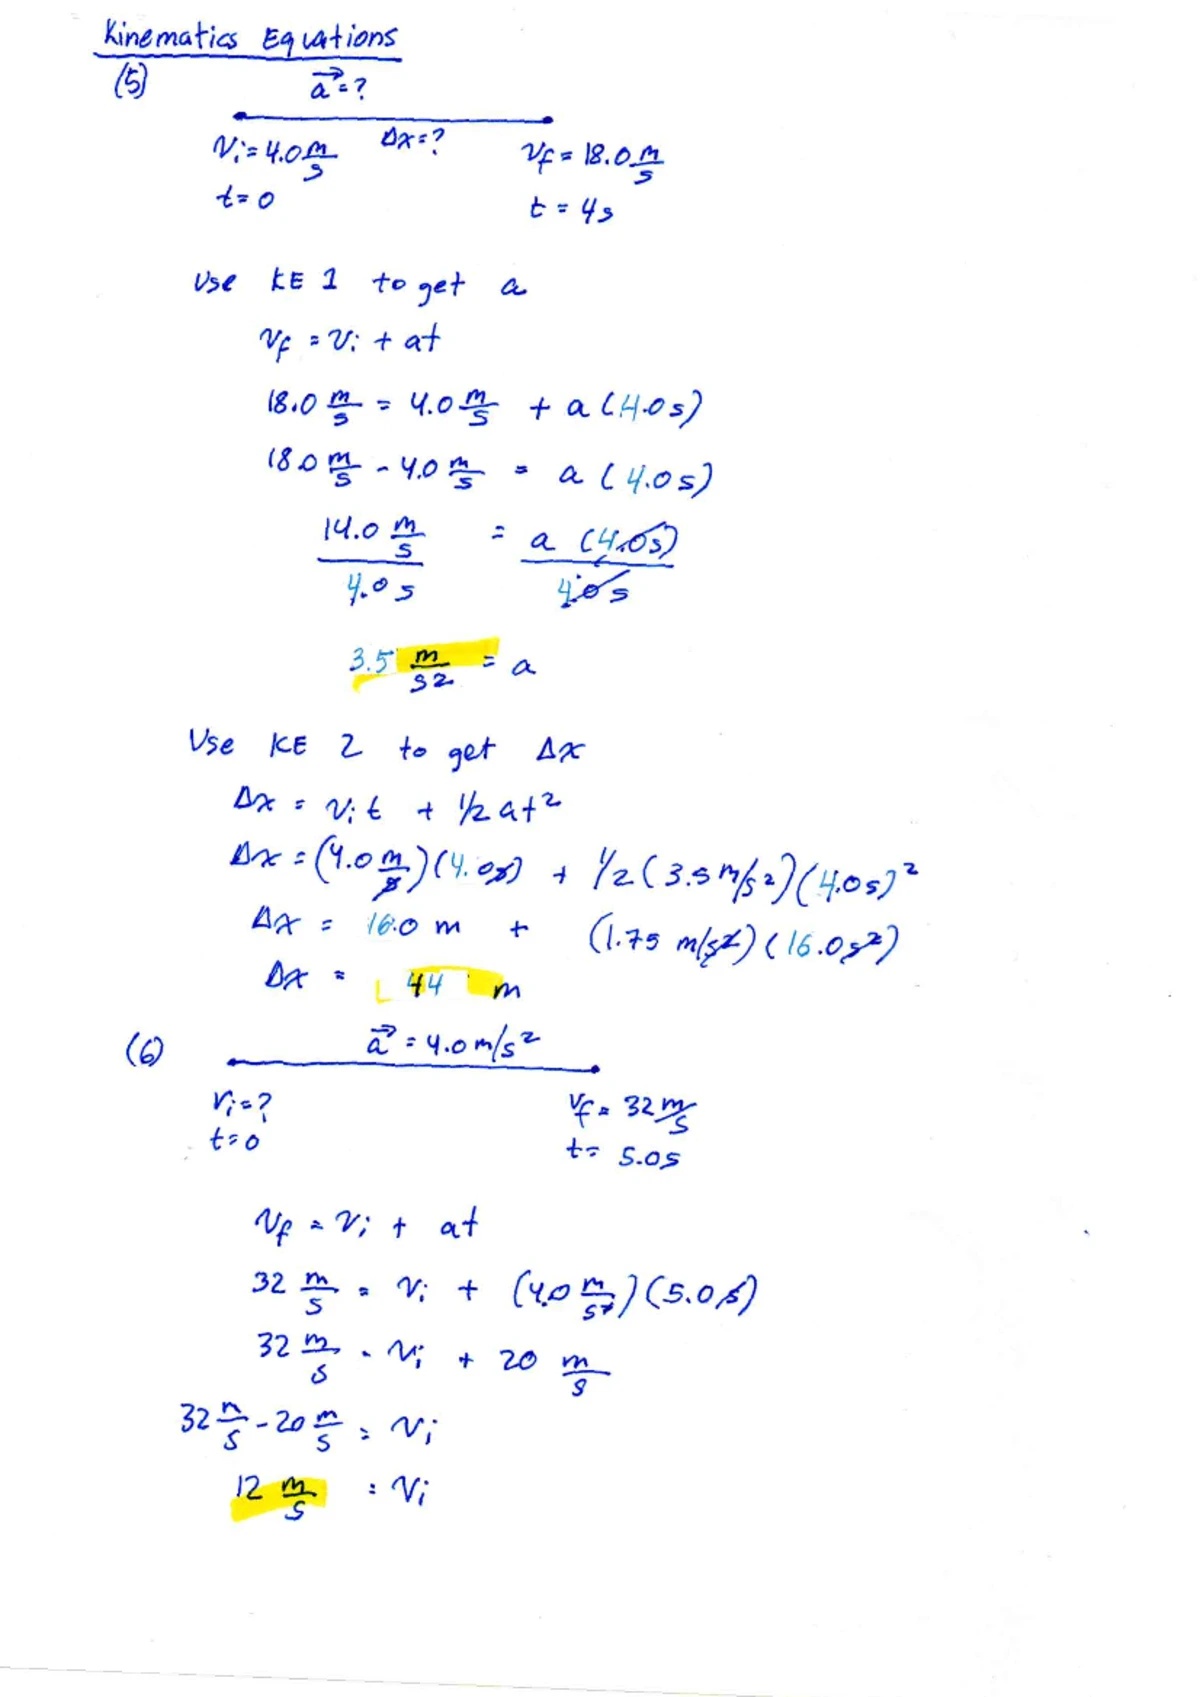 Kinematics Equations
(5) a⃗ = ?
Δx = ?
Vi = 4.0 m/s Vf = 18.0 m/s
t = 0 t = 4s
Use KE 1 to get a
Vf = Vi + at
18.0 m/s = 4.0 m/s + a (4.0s)
18.0 m/s - 4.0 m/s = a (4.0s)
14.0 m/s / 4.0 s = a (4.0s) / 4.0s
3.5 m/s2 = a
Use KE 2 to get Δx
Δx = Vi t + 1/2 at²
Δx = (4.0 m/s)(4.0s) + 1/2 (3.5 m/s²)(4.0s)²
Δx = 16.0 m + (1.75 m/s²)(16.0s²)
Δx = 44 m
(6) a⃗ = 4.0 m/s²
Vi = ? Vf = 32 m/s
t = 0 t = 5.0s
Vf = Vi + at
32 m/s = Vi + (4.0 m/s²)(5.0s)
32 m/s = Vi + 20 m/s
32 m/s - 20 m/s = Vi
12 m/s = Vi